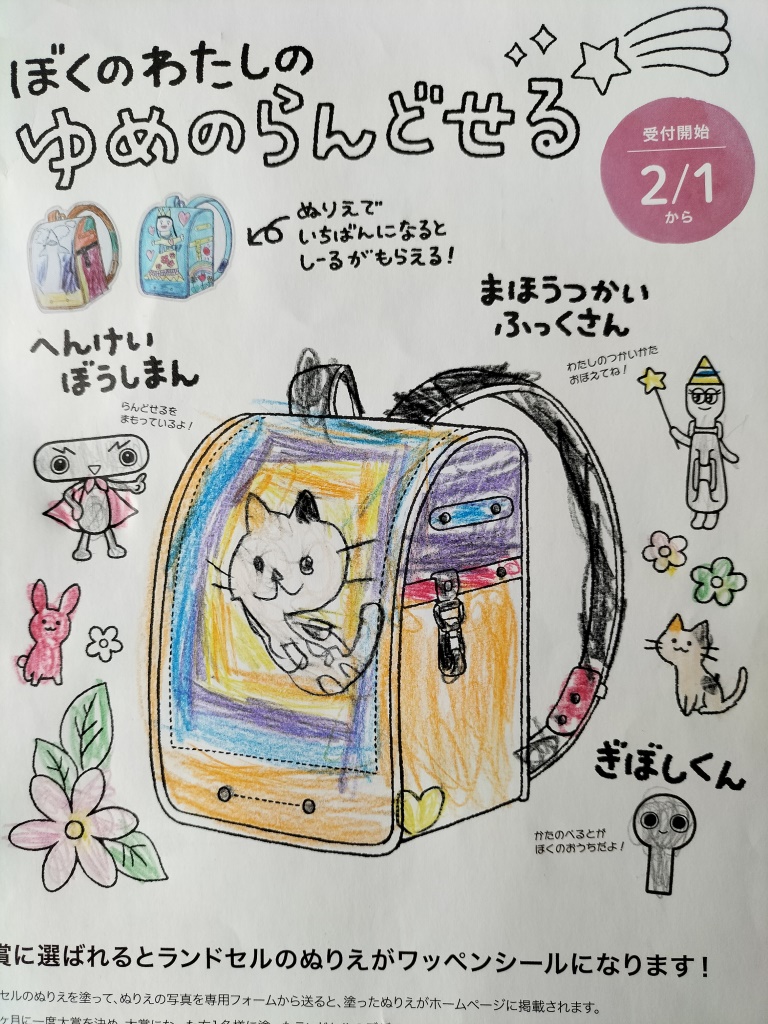 ぼくのわたしの
ゆめのらんどせる
受付開始
2/1
から
ぬりえで
いちばんになると
しーるがもらえる!
まほうつかい
ふっくさん
わたしのつかいかた
おぼえてね!
へんけい
ぼうしまん
らんどせるを
まもっているよ!
ぎぼしくん
かたのべるとが
ぼくのおうちだよ!
賞に選ばれるとランドセルのぬりえがワッペンシールになります!
セルのぬりえを塗って、ぬりえの写真を専用フォームから送ると、塗ったぬりえがホームページに掲載されます。
ヶ月に一度大賞を決め、大賞に